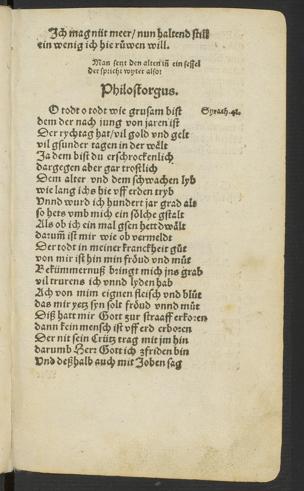 Jch mag nüt meer/ nun haltend still
ein wenig ich hie růwen will.
Man sent den alten iñ ein sessel
der spricht wyter also:
Philostorgus.
O todt o todt wie grusam bist
Syrach.41.
dem der nach jung von jaren ist
Der rychtag hat/vil gold vnd gelt
vil gsunder tagen in der wält
Ja dem bist du erschrockenlich
dargegen aber gar trostlich
Dem alter vnd dem schwachen lyb
wie lang ichs hie vff erden tryb
Vnnd wurd ich hundert jar grad als
so hets vmb mich ein sölche gstalt
Als ob ich ein mal gsen hett dwält
darum̃ ist mir wie ob vermeldt
Der todt in meiner kranckheit gůt
von mir ist hin min fröud vnd můt
Bekümmernuß bringt mich jns grab
vil trurens ich vnnd lyden hab
Ach von mim eignen fleisch vnd blůt
das mir yetz syn solt fröud vnnd můt
Diß hatt mir Gott zur straaff erkoren
dann kein mensch ist vff erd erboren
Der nit sein Crütz trag mit jm hin
darumb Herr Gott ich zfriden bin
Vnd deßhalb auch mit Joben sag